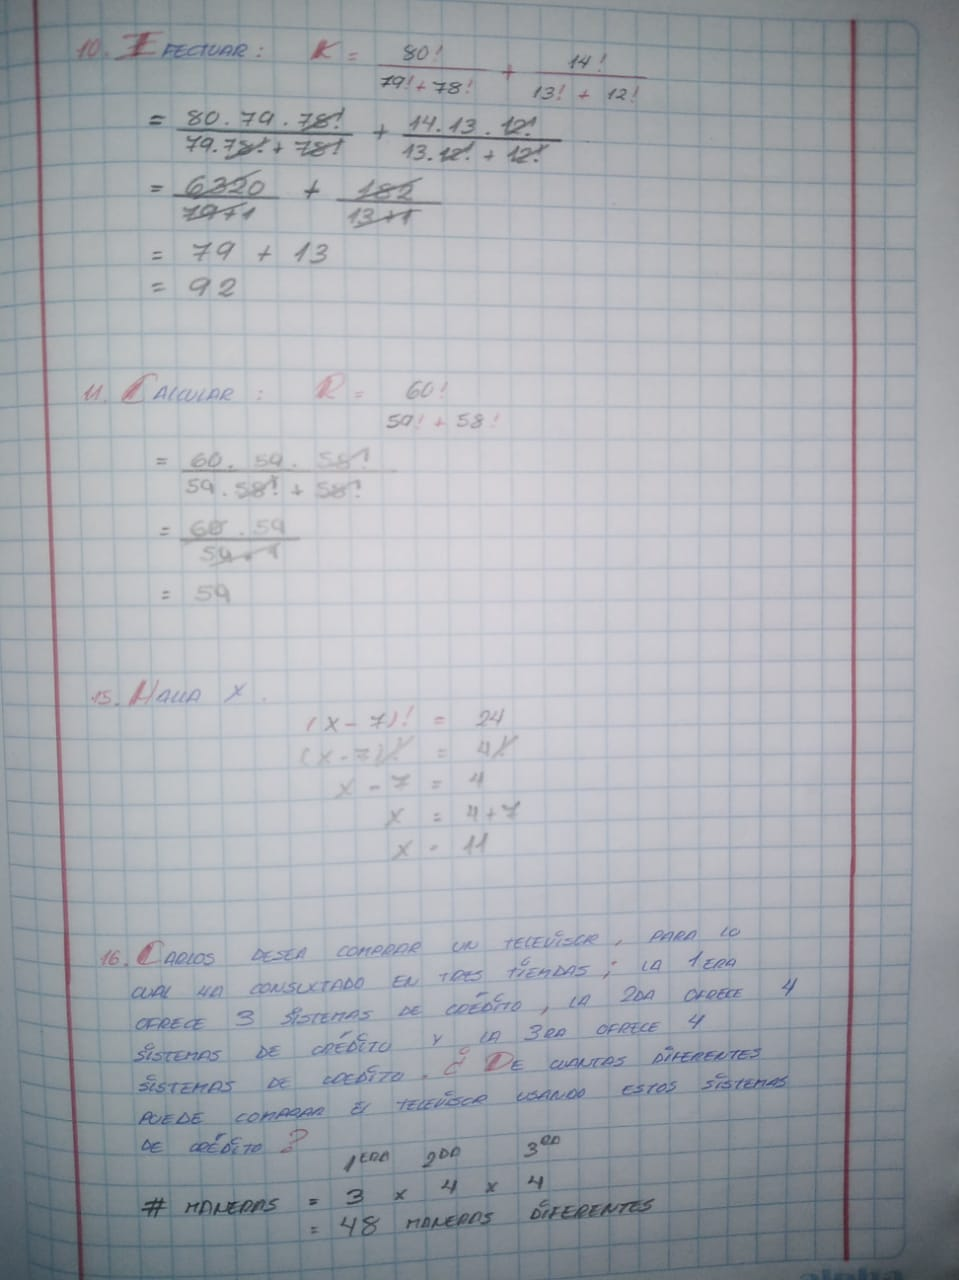 10. EFECTUAR: K = 80! / 79! + 78! + 14! / 13! + 12!
= 80.79.78! / 79.78! + 78! + 14.13.12! / 13.12! + 12!
= 6320 / 79+1 + 182 / 13+1
= 79 + 13
= 92
11. CALCULAR: R = 60! / 59! + 58!
= 60. 59. 58! / 59.58! + 58!
= 60.59 / 59+1
= 59
15. HALLA X.
(x-7)! = 24
(x-7)! = 4!
x-7 = 4
x = 4+7
x = 11
16. CARLOS DESEA COMPRAR UN TELEVISOR, PARA LO
CUAL HA CONSULTADO EN TRES TIENDAS; LA 1ERA
OFRECE 3 SISTEMAS DE CRÉDITO, LA 2DA OFRECE 4
SISTEMAS DE CRÉDITO Y LA 3RA OFRECE 4
SISTEMAS DE CREDITO. ¿ DE CUANTAS DIFERENTES
PUEDE COMPRAR EL TELEVISOR USANDO ESTOS SISTEMAS
DE CRÉDITO ?
1ERA 2DA 3RA
# MANERAS = 3 x 4 x 4
= 48 MANERAS DIFERENTES